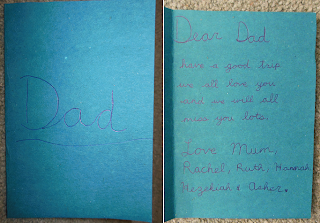 Dad
Dear Dad
have a good trip
we all love you
and we will all
miss you lots.
Love Mum,
Rachel, Ruth, Hannah
Hezekiah & Asher.